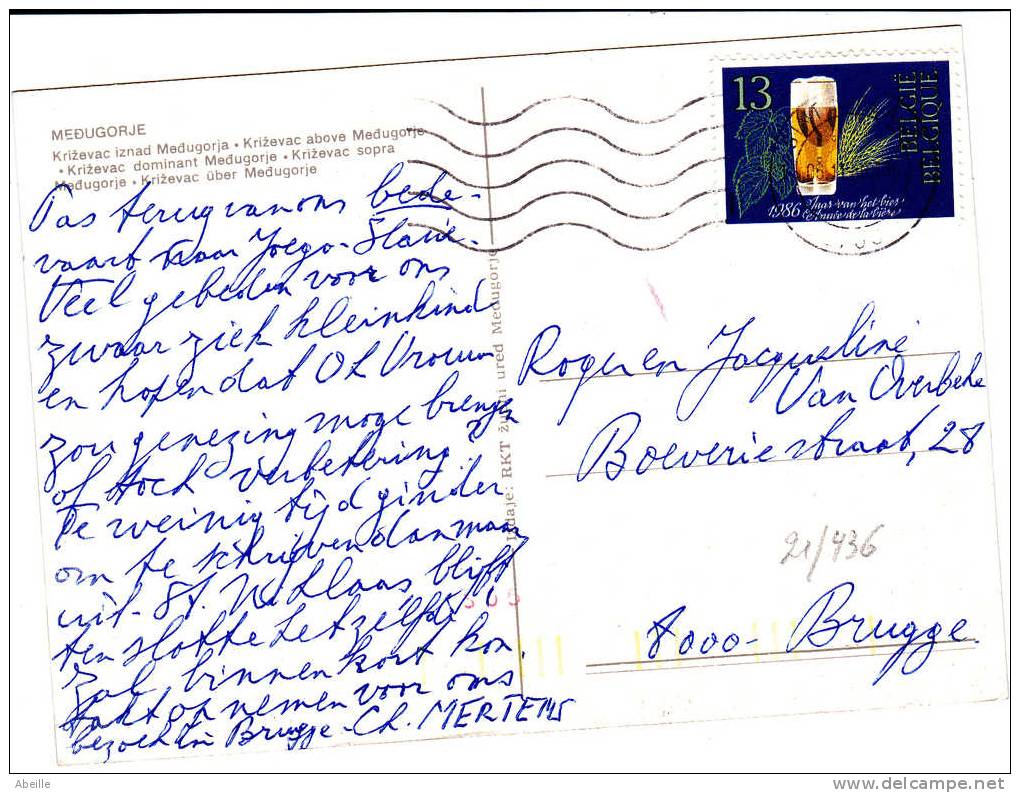 MEĐUGORJE
Križevac iznad Međugorja • Križevac above Međugorje
• Križevac dominant Međugorje • Križevac sopra
Međugorje • Križevac über Međugorje
Pas terug van ons bede-
vaart naar Joego-Slavië.
Veel gebeden voor ons
zwaar ziek kleinkind
en hopen dat OL Vrouw
zou genezing moge brengen
of toch verbetering.
Te weinig tijd ginder
om te schrijven dan maar
uit St. Niklaas blijft
ten slotte hetzelfde
Zal binnenkort kon
takt opnemen voor ons
bezoek in Brugge - Ch. MERTENS
Izdaje: RKT župni ured Međugorje
13
BELGIË
BELGIQUE
1986 Jaar van het bier
Année de la bière
Roger en Jacqueline
Van Overbeke
Boeveriestraat, 28
21/436
8000 - Brugge
Abeille
delcampe.net